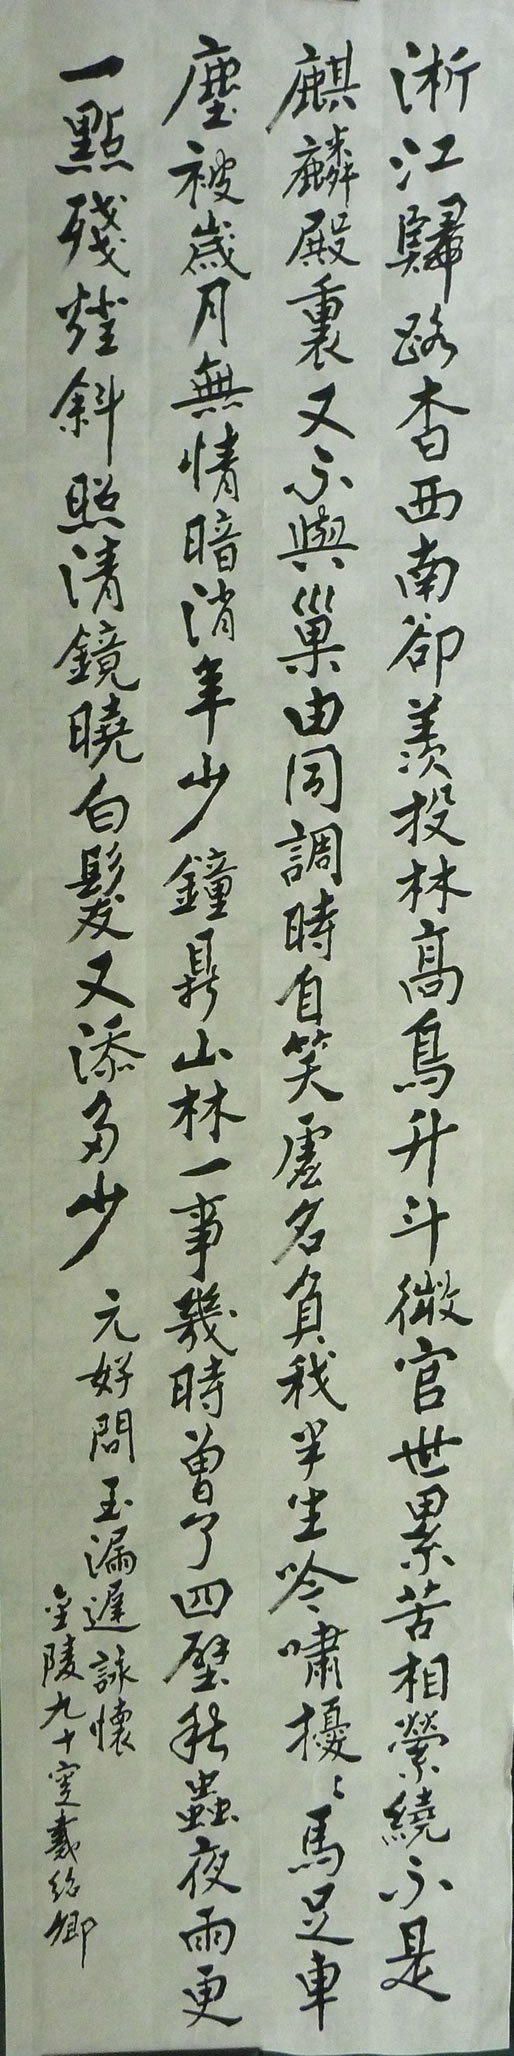 淅江歸路杳西南卻羨投林高鳥升斗微官世累苦相縈繞不是
麒麟殿裏又不與巢由同調時自笑虛名負我半生吟嘯擾〻馬足車
塵被歲月無情暗消年少鐘鼎山林一事幾時曾了四壁秋蟲夜雨更
一點殘燈斜照清鏡曉白髮又添多少
元好問玉漏遲詠懷
金陵九十叟戴紹卿